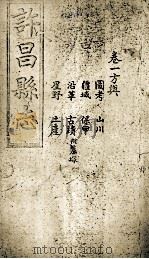 卷一方輿
圖考 山川
疆域 保甲
沿革 古蹟
星野
許昌縣志
mtoou.info mtoou.info